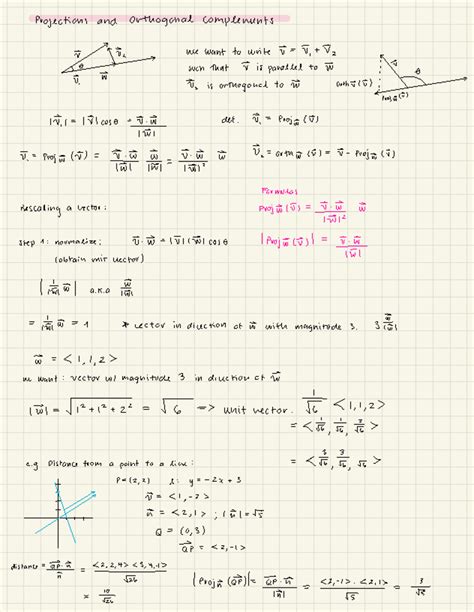 Projections and Orthogonal Complements
we want to write v⃗ = v⃗₁ + v⃗₂
such that v⃗ is parallel to w⃗
v⃗₂ is orthogonal to w⃗
v⃗ v⃗₂ θ v⃗₁ w⃗
orth w⃗ (v⃗) θ proj w⃗ (v⃗)
|v⃗₁| = |v⃗| cos θ = v⃗ · w⃗ / |w⃗|
def. v⃗₁ = Proj w⃗ (v⃗)
v⃗₁ = Proj w⃗ (v⃗) = v⃗ · w⃗ / |w⃗| w⃗ / |w⃗| = v⃗ · w⃗ / |w⃗|² w⃗
v⃗₂ = orth w⃗ (v⃗) = v⃗ - Proj w⃗ (v⃗)
Formulas
Rescaling a vector:
Proj w⃗ (v⃗) = v⃗ · w⃗ / |w⃗|² w⃗
step 1: normalize; v⃗ · w⃗ = |v⃗| |w⃗| cos θ
|Proj w⃗ (v⃗)| = v⃗ · w⃗ / |w⃗|
(obtain unit vector)
| 1/|w⃗| w⃗ | a.k.a w⃗ / |w⃗|
= 1/|w⃗| w⃗ = 1 * vector in direction of w⃗ with magnitude 3. 3 w⃗/|w⃗|
w⃗ = < 1, 1, 2 >
we want: vector w/ magnitude 3 in direction of w⃗
|w⃗| = √1² + 1² + 2² = √6 => unit vector. 1/√6 < 1, 1, 2 >
= < 1/√6, 1/√6, 2/√6 >
= < 3/√6, 3/√6, 6/√6 >
e.g Distance from a point to a line:
P = (2, 2) l: y = -2x + 3
v⃗ = < 1, -2 >
n⃗ = < 2, 1 > ; |n⃗| = √5
Q = (0, 3)
QP⃗ = < 2, -1 >
distance = QP⃗ · n⃗ / n⃗ = < 2, 2, 4 > < 3, 4, -1 > / √26
= 10 / √26
| Proj n⃗ (QP⃗) | = QP⃗ · n⃗ / |n⃗| = < 2, -1 > · < 2, 1 > / √5 = 3 / √5